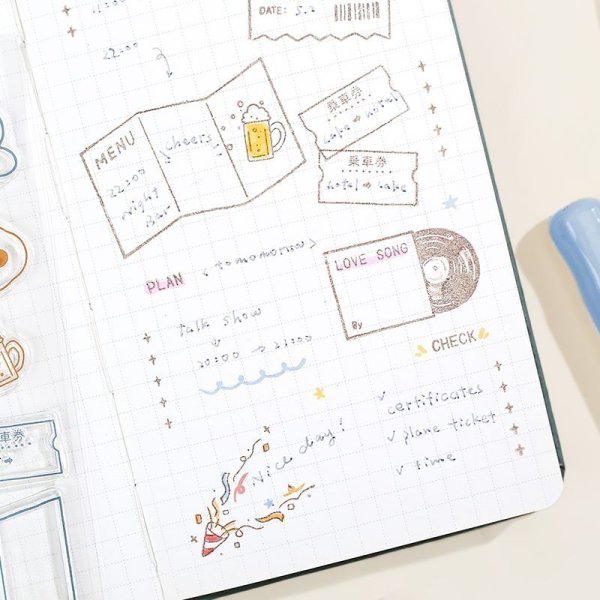 11:00
22:00
DATE: 5.2
MENU
22:00
night
Bar
cheers
乗車券
lake → hotel
乗車券
hotel → lake
PLAN
< tomomorrow >
talk show
20:00 → 21:00
LOVE SONG
By
CHECK
✓ certificates
✓ plane ticket
✓ time
Nice day!
車券